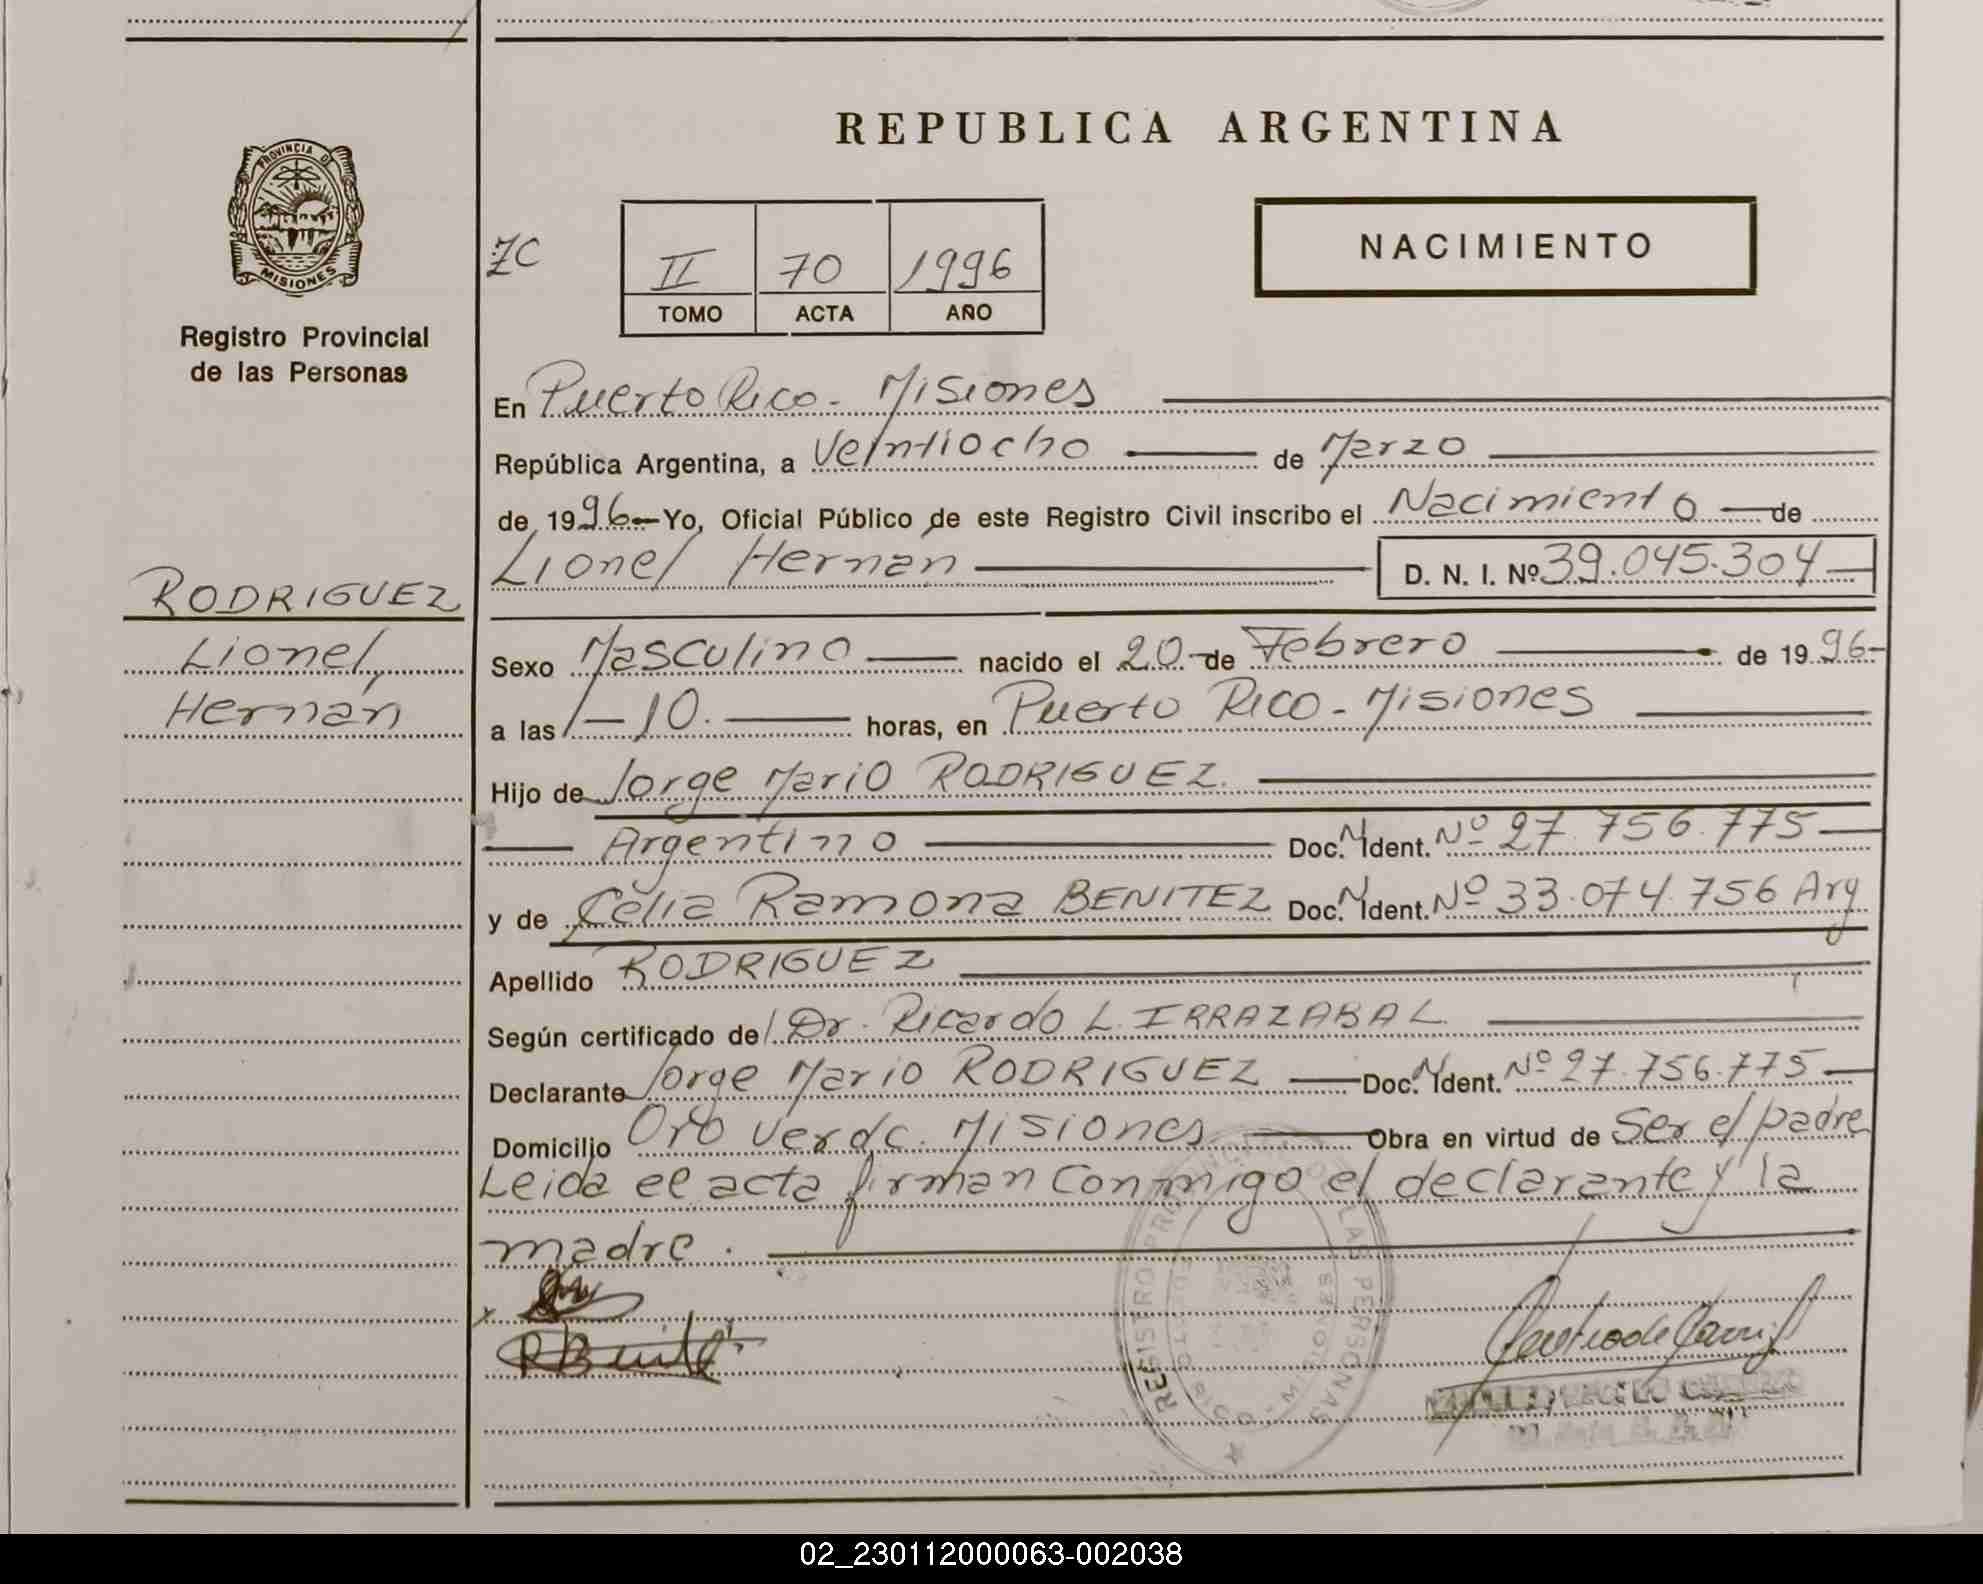 REPUBLICA ARGENTINA
PROVINCIA DE
MISIONES
Registro Provincial
de las Personas
NACIMIENTO
ZC
II 70 1996
TOMO ACTA AÑO
En Puerto Rico - Misiones
República Argentina, a Veintiocho de Marzo
de 1996 - Yo, Oficial Público de este Registro Civil inscribo el Nacimiento de
Lionel Hernan D. N. I. Nº 39.045.304
RODRIGUEZ
Lionel
Hernán
Sexo Masculino nacido el 20 de Febrero de 1996
a las 10. horas, en Puerto Rico - Misiones
Hijo de Jorge Mario RODRIGUEZ.
Argentino Doc. N. Ident. Nº 27.756.775
y de Celia Ramona BENITEZ Doc. N. Ident. Nº 33.074.756 Arg
Apellido RODRIGUEZ
Según certificado de Dr. Ricardo L. IRRAZABAL
Declarante Jorge Mario RODRIGUEZ Doc. N. Ident. Nº 27.756.775
Domicilio Oro Verde. Misiones Obra en virtud de Ser el padre
Leida el acta firman conmigo el declarante y la
madre.
x
R Benitez
REGISTRO PROVINCIAL DE LAS PERSONAS
PUERTO RICO - MISIONES
02_230112000063-002038